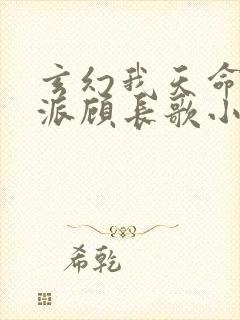 玄幻我天命
派顾长歌小
希乾